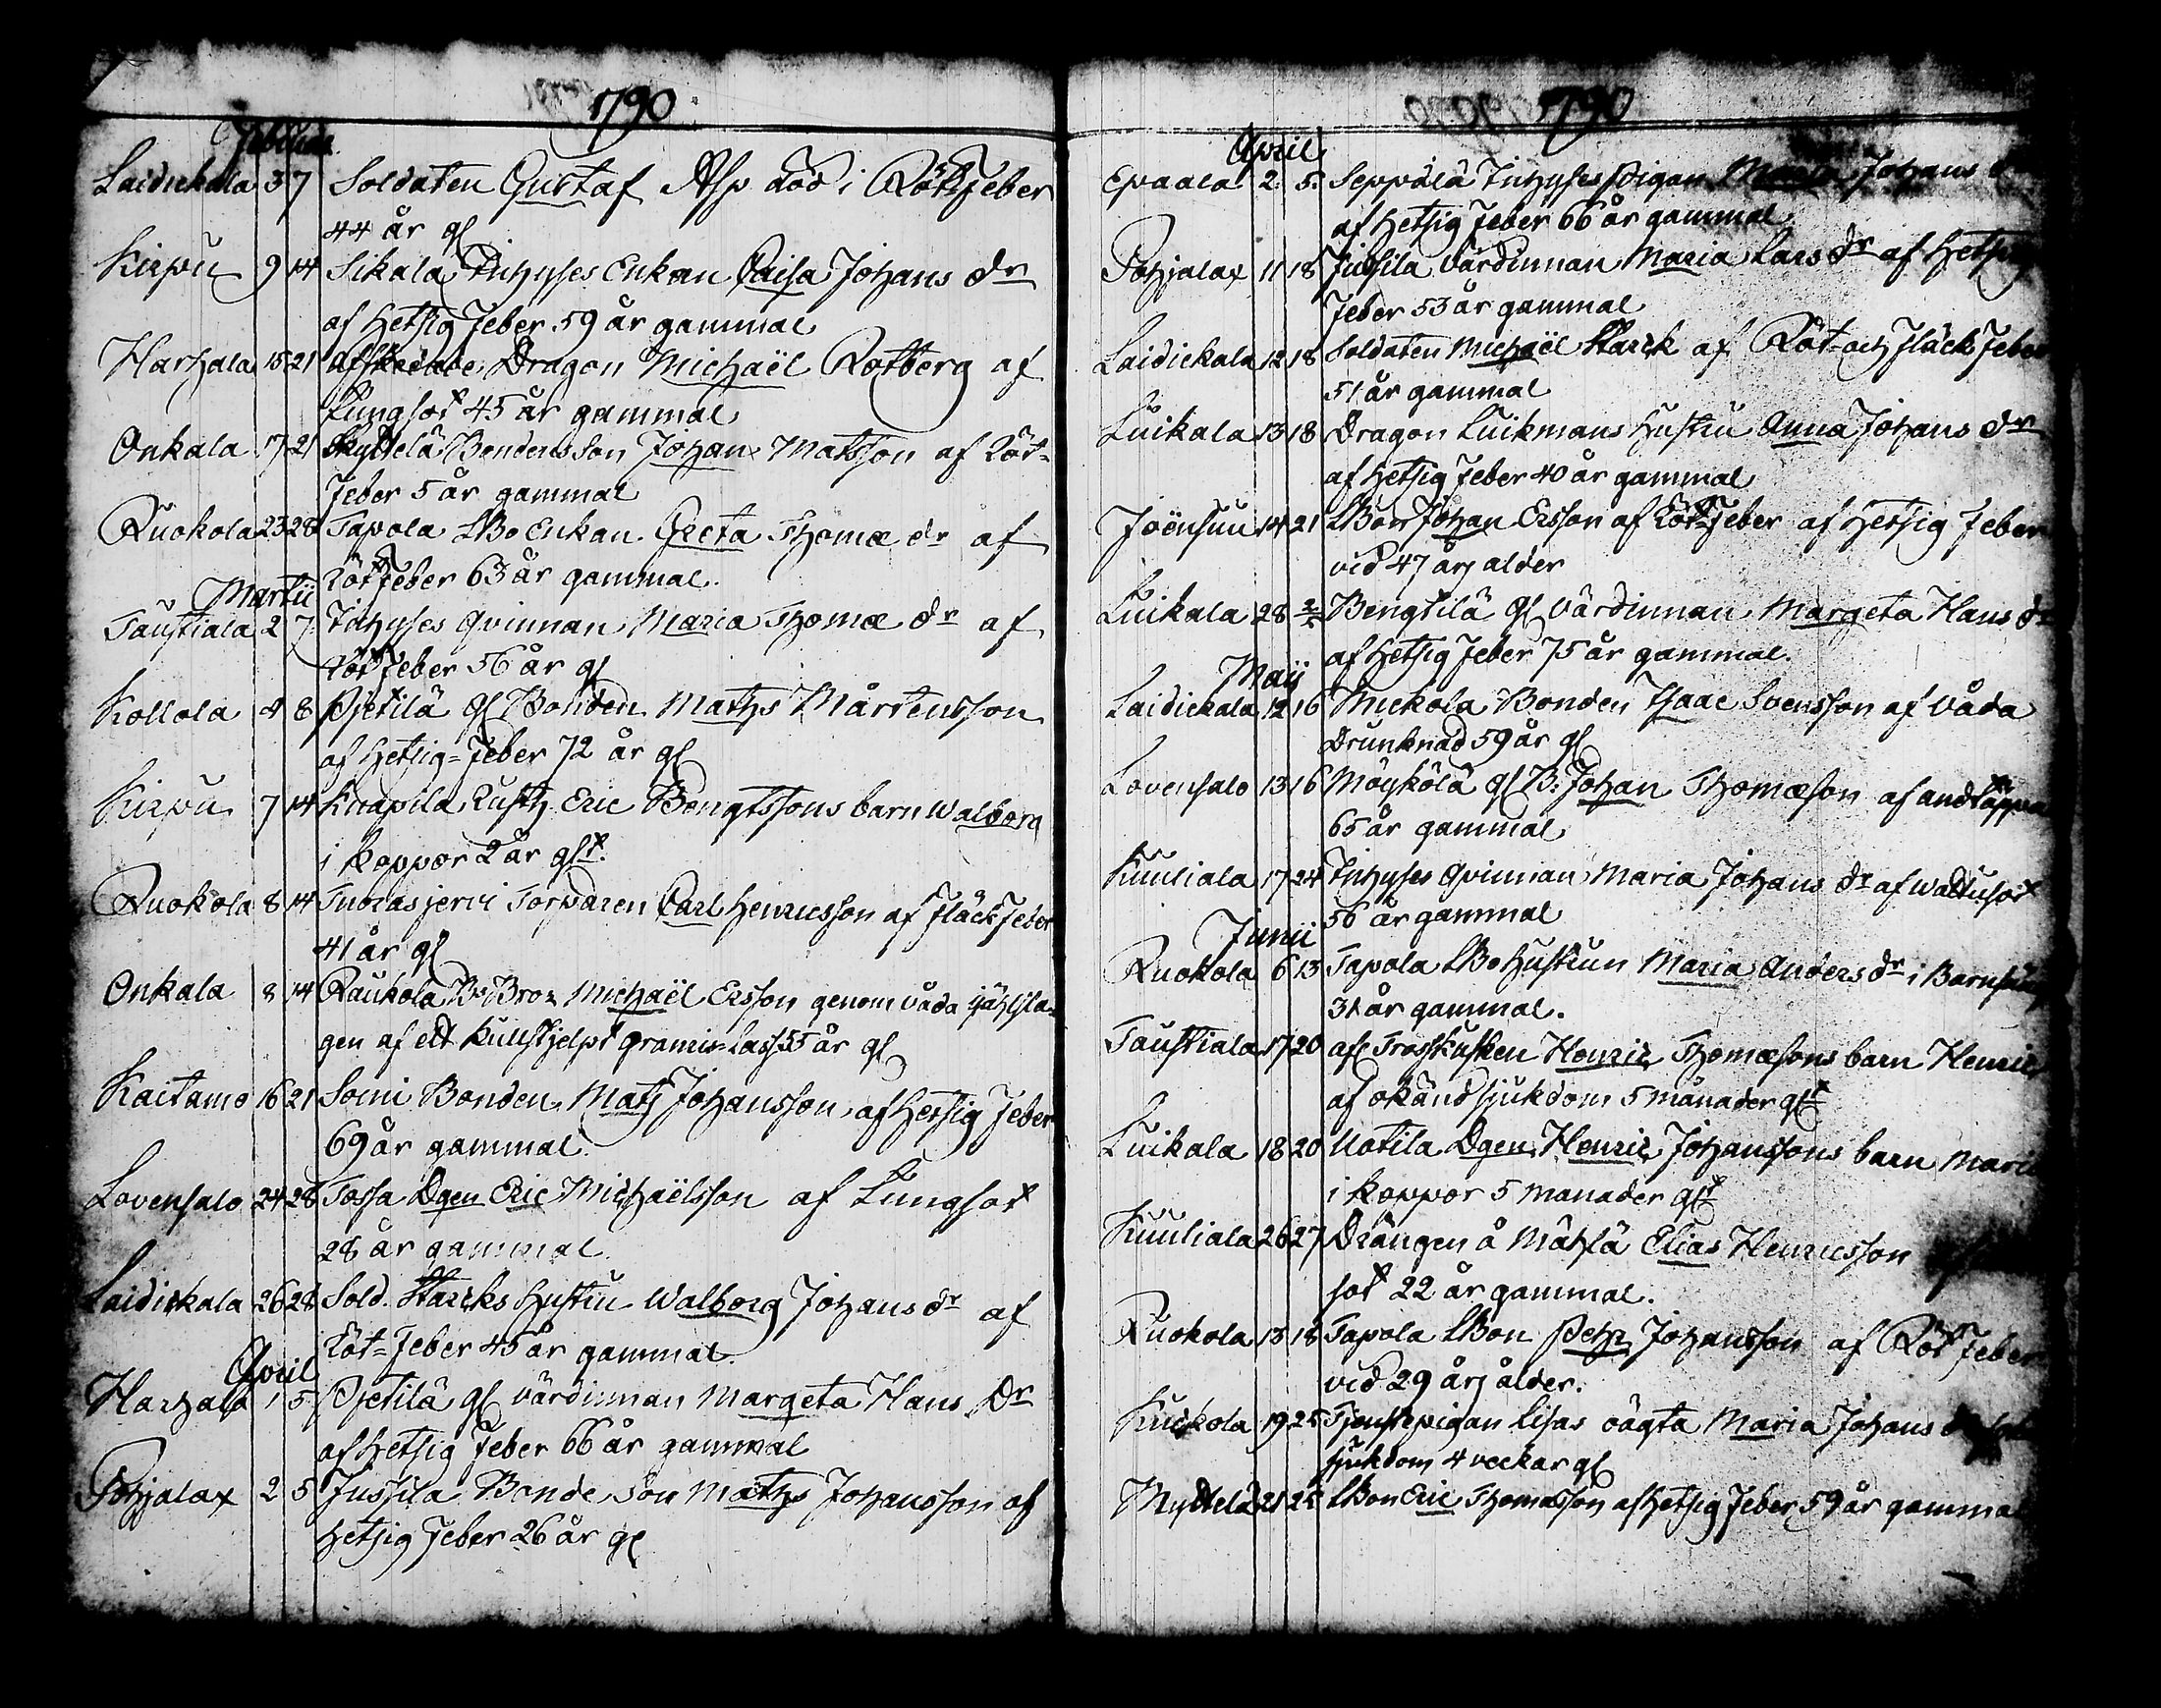 1790
Februar.
Laidickala 3 7 Soldaten Gustaf Asp död i Rötfeber
44 år gl
Kirpu 9 14 Sikala Inhyses Enkan Caisa Johans dr
af Hetsig Feber 59 år gammal
Harhala 15 21 afskedade Dragon Michaël Rotberg af
Lungsot 45 år gammal
Onkala 17 21 Skyttelä Bondens Son Johan Matsson af Röt-
Feber 5 år gammal
Ruokola 23 28 Tapola LBo Enkan Greta Thomæ dr af
Rötfeber 63 år gammal.
Martii
Taustiala 2 7 Inhyses Qvinnan Maria Thomæ dr af
Rötfeber 56 år gl
Kollola 4 8 Pjetilä gl Bonden Mathz Mårtensson
af Hetsig-Feber 72 år gl
Kirpu 7 14 Knapila Rusth. Eric Bengtssons barn Walborg
i Koppor 2 år glt.
Ruokola 8 14 Tuorasjervi Torparen Carl Henricsson af Fläckfeber
41 år gl
Onkala 8 14 Raukola Bs Bror Michaël Ersson genom våda ihjählsla-
gen af ett Kullstjelpt Granris-lass 55 år gl
Kaitamo 16 21 Somi Bonden Mats Johansson af Hetsig Feber
69 år gammal.
Lovensalo 24 28 Tossa Dgen Eric Michaëlsson af Lungsot
28 år gammal.
Laidickala 26 28 Sold. Starcks Hustru Walborg Johans dr af
Röt-Feber 45 år gammal.
April
Harhala 1 5 Pjetilä gl värdinnan Margeta Hans Dr
af Hetsig Feber 66 år gammal
Pohjalax 2 5 Jussila Bonde Son Mathz Johansson af
Hetsig Feber 26 år gl
1790
April
Epaala 2 5 Seppälä Inhyses Pigan Maria Johans
af Hetsig Feber 66 år gammal
Pohjalax 11 18 Jussila Värdinnan Maria Lars dr af Hetsig
Feber 53 år gammal
Laidickala 12 18 Soldaten Michaël Starck af Röt- och Fläck Feber
51 år gammal
Luikala 13 18 Dragon Luikmans Hustru Anna Johans dr
af Hetsig Feber 40 år gammal
Joënsuu 14 21 LBon Johan Ersson af Rötfeber af Hetsig Feber
vid 47 års alder
Luikala 28 2/5 Bengtilä gl Värdinnan Margeta Hans dr
af Hetsig Feber 75 år gammal.
Maij
Laidickala 12 16 Mickola Bonden Isaac Svensson af Våda
Drunknad 59 år gl
Lovensalo 13 16 Möykölä gl B. Johan Thomæson af andtäppa
65 år gammal
Kuuliala 17 24 Inhyses Qvinnan Maria Johans dr af Wattusot
56 år gammal
Junii
Ruokola 6 13 Tapola LBo Hustrun Maria Anders dr i Barnsäng
31 år gammal.
Taustiala 17 20 afl Trosskusken Henric Thomæsons barn Henric
af okänd sjukdom 5 månader glt
Luikala 18 20 Uotila Dgen Henric Johanssons barn Maria
i Koppor 5 månader glt
Kuuliala 26 27 Drängen å Mähilä Elias Henricsson
sot 22 år gammal.
Ruokola 13 18 Tapola LBon Pehr Johansson af Röt Feber
vid 29 års ålder.
Kuckola 19 25 Tjenstepigan Lisas oägta Maria Johans
sjukdom 4 veckar gl
Myttelä 21 25 LBon Eric Thomæsson af Hetsig Feber 59 år gammal